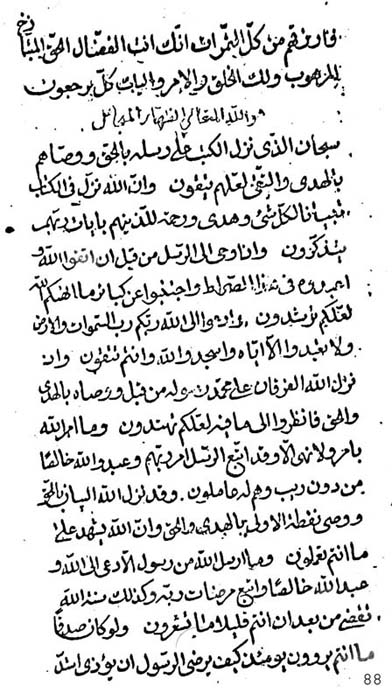 فارزقهم من كل الثمرات انك انت الفضال الحي
المرهوب ولك الخلق والامر واليك كل يرجعون
سبحان الذي نزل الكتب على رسله بالحق ووصاهم
بالهدى والتقى لعلهم يتقون وان الله نزل في الكتاب
تبيانا لكل شئ وهدى ورحمة للذينهم بايات ربهم
يتذكرون وانا اوحى الى الرسل من قبل ان اتقوا الله و
في هذا الصراط واجتنبوا عن كبائر ما انهيكم الله
لعلكم ترشدون الى الله ربكم رب السموات والارض
ولا تعبدوا الا اياه واسجدوا لله وانتم تتقون وان
نزل الله الفرقان على محمد رسوله من قبل ووصاه بالهدى
والحق فانظروا الى ما فيه لعلكم تهتدون وما امر الله
بامر ولا نهى الا وقد اتبع الرسل امر ربهم وعبدوا الله خالصا
من دون ريب وهم له عاملون وقد نزل الله البيان بالحق
ووصى نقطة الاولى بالهدى والحق وان الله يشهد على
ما انتم تعملون وما ارسل الله من رسول الا دعى الى الله و
عبد الله خالصا واتبع مرضات ربه وكذلك سنة الله
تقضى من بعد ان انتم قليلا ما تشعرون ولو كان صدقا
ما انتم تروون يومئذ كيف يرضى الرسول ان يؤذى
88